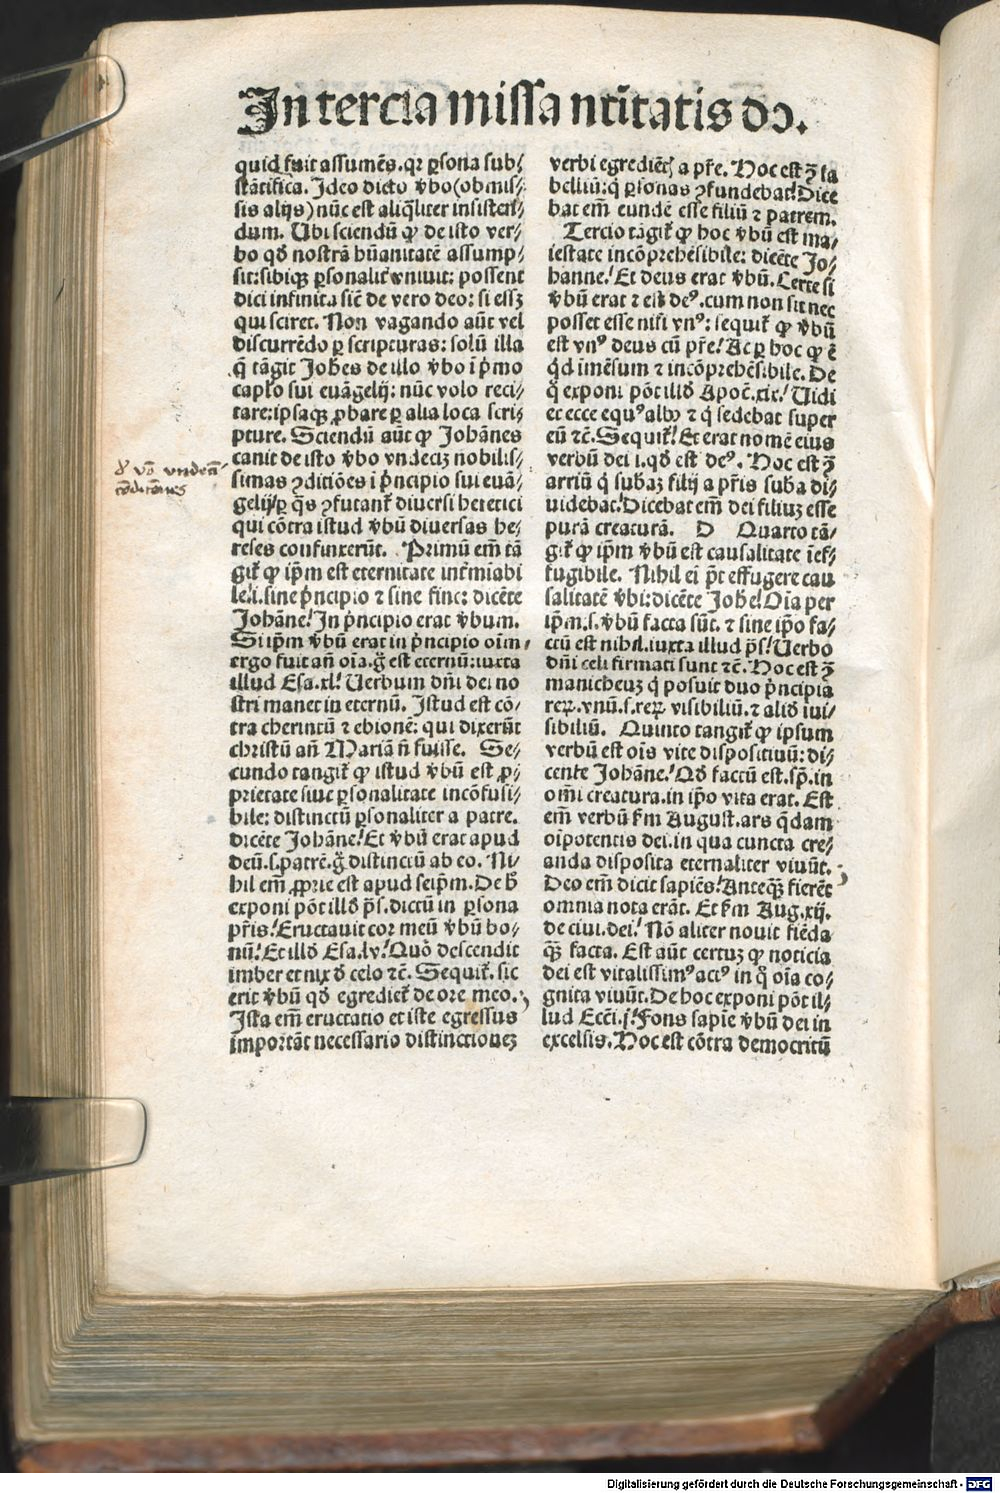 In tercia missa nťitatis dɔ̄.
quid fuit assumēs. qꝛ ꝑsona sub⸗
stātifica. Ideo dicto v̓bo (obmis⸗
sis alijs) nūc est aliq̄liter insisten⸗
dum. Ubi sciendū ꝙ de isto ver⸗
bo qď nostrā hūanitatē assump⸗
sit: sibiqꝫ ꝑsonalit̓ vniuit: possent
dici infinita sic̄ de vero deo: si essꝫ
qui sciret. Non vagando aūt vel
discurrēdo ꝑ scripturas: solū illa
q̄ tāgit Joh̄es de illo v̓bo i p̓mo
cap̄lo sui euāgelij: nūc volo reci⸗
tare: ipsaqꝫ ꝓbare ꝑ alia loca scri⸗
pture. Sciendū aūt ꝙ Johānes
canit de isto v̓bo vndecꝫ nobilis⸗
simas ꝯditiōes i p̓ncipio sui euā⸗
gelij/ ꝑ q̄s ꝯfutant̓ diuersi heretici
qui cōtra istud v̓bū diuersas he⸗
reses confinxerūt. Primū em̄ tā
git̓ ꝙ ip̄m est eternitate int̓mīabi
le. i. sine p̓ncipio ⁊ sine fine: dicēte
Johāne! In p̓ncipio erat v̓bum.
Si ip̄m v̓bū erat in p̓ncipio oīm
ergo fuit an̄ oīa. g̊ est eternū: iuxta
illud Esa. xl! Uerbum dn̄i dei no
stri manet in eternū. Istud est cō⸗
tra cherintū ⁊ ebionē: qui dixerūt
christū an̄ Mariā n̄ fuisse. Se⸗
cundo tangit̓ ꝙ istud v̓bū est ꝓ⸗
prietate siue ꝑsonalitate incōfusi⸗
bile: distinctū ꝑsonaliter a patre.
dicēte Johāne! Et v̓bū erat apud
deū. s. patrē. g̊ distinctū ab eo. Ni⸗
hil em̄ ꝓprie est apud seip̄m. De h̄
exponi pōt illď p̄s. dictū in ꝑsona
pr̄is! Eructauit cor meū v̓bū bo⸗
nū! Et illď Esa. lv! Quō descendit
imber et nix ď celo ⁊c̄. Sequit̓. sic
erit v̓bū qď egrediet̓ de ore meo.
Ista em̄ eructatio et iste egressus
important necessario distinctioneꝫ
ꝟ vō vndecī
cōditiōnes
verbi egrediētꝭ a pr̄e. Hoc est ꝯ̄ sa
belliū: q̓ ꝑsonas ꝯfundebat! Dice
bat em̄ eundē esse filiū ⁊ patrem.
Tercio tāgit̓ ꝙ hoc v̓bū est ma⸗
iestate incōprehēsibile: dicēte Jo⸗
hanne! Et deus erat v̓bū. Certe si
v̓bū erat ⁊ est de⁹. cum non sit nec
posset esse nisi vn⁹: sequit̓ ꝙ v̓bū
est vn⁹ deus cū pr̄e! Ac ꝑ hoc ꝙ ē
q̓d īmēsum ⁊ incōprehēsibile. De
q̊ exponi pōt illď Apoc̄. xix! Uidi
et ecce equ⁹ alb⁹ ⁊ q̓ sedebat super
eū ⁊c̄. Sequit̓! Et erat nomē eius
verbū dei i. qď est de⁹. Hoc est ꝯ̄
arriū q̓ subaꝫ filij a pr̄is suba di⸗
uidebat. Dicebat em̄ dei filiuꝫ esse
purā creaturā. D Quarto tā⸗
git̓ ꝙ ip̄m v̓bū est causalitate īef⸗
fugibile. Nihil ei p̄t effugere cau
salitatē v̓bi: dicēte Joh̄e! Oīa per
ip̄m. s. v̓bū facta sūt. ⁊ sine ip̄o fa⸗
ctū est nihil. iuxta illud p̄s! Uerbo
dn̄i celi firmati sunt ⁊c̄. Hoc est ꝯ̄
manicheuꝫ q̓ posuit duo p̓ncipia
reꝝ. vnū. s. reꝝ visibiliū. ⁊ aliď iui⸗
sibiliū. Quinto tangit̓ ꝙ ipsum
verbū est oīs vite dispositiuū: di⸗
cente Johāne! Qď factū est. sp̄. in
omī creatura. in ip̄o vita erat. Est
em̄ verbū k̄m August. ars q̄dam
oīpotentis dei. in qua cuncta cre⸗
anda disposita eternaliter viuūt.
Deo em̄ dicit sapiēs! Anteq̄ꝫ fierēt
omnia nota erāt. Et k̄m Aug. xij.
de ciui. dei! Nō aliter nouit fiēda
q̄ꝫ facta. Est aūt certuꝫ ꝙ noticia
dei est vitalissim⁹ act⁹ in q̊ oīa co⸗
gnita viuūt. De hoc exponi pōt il⸗
lud Ecc̄i. j! Fons sapie v̓bū dei in
excelsis. Hoc est cōtra democritū
Digitalisierung gefördert durch die Deutsche Forschungsgemeinschaft - DFG